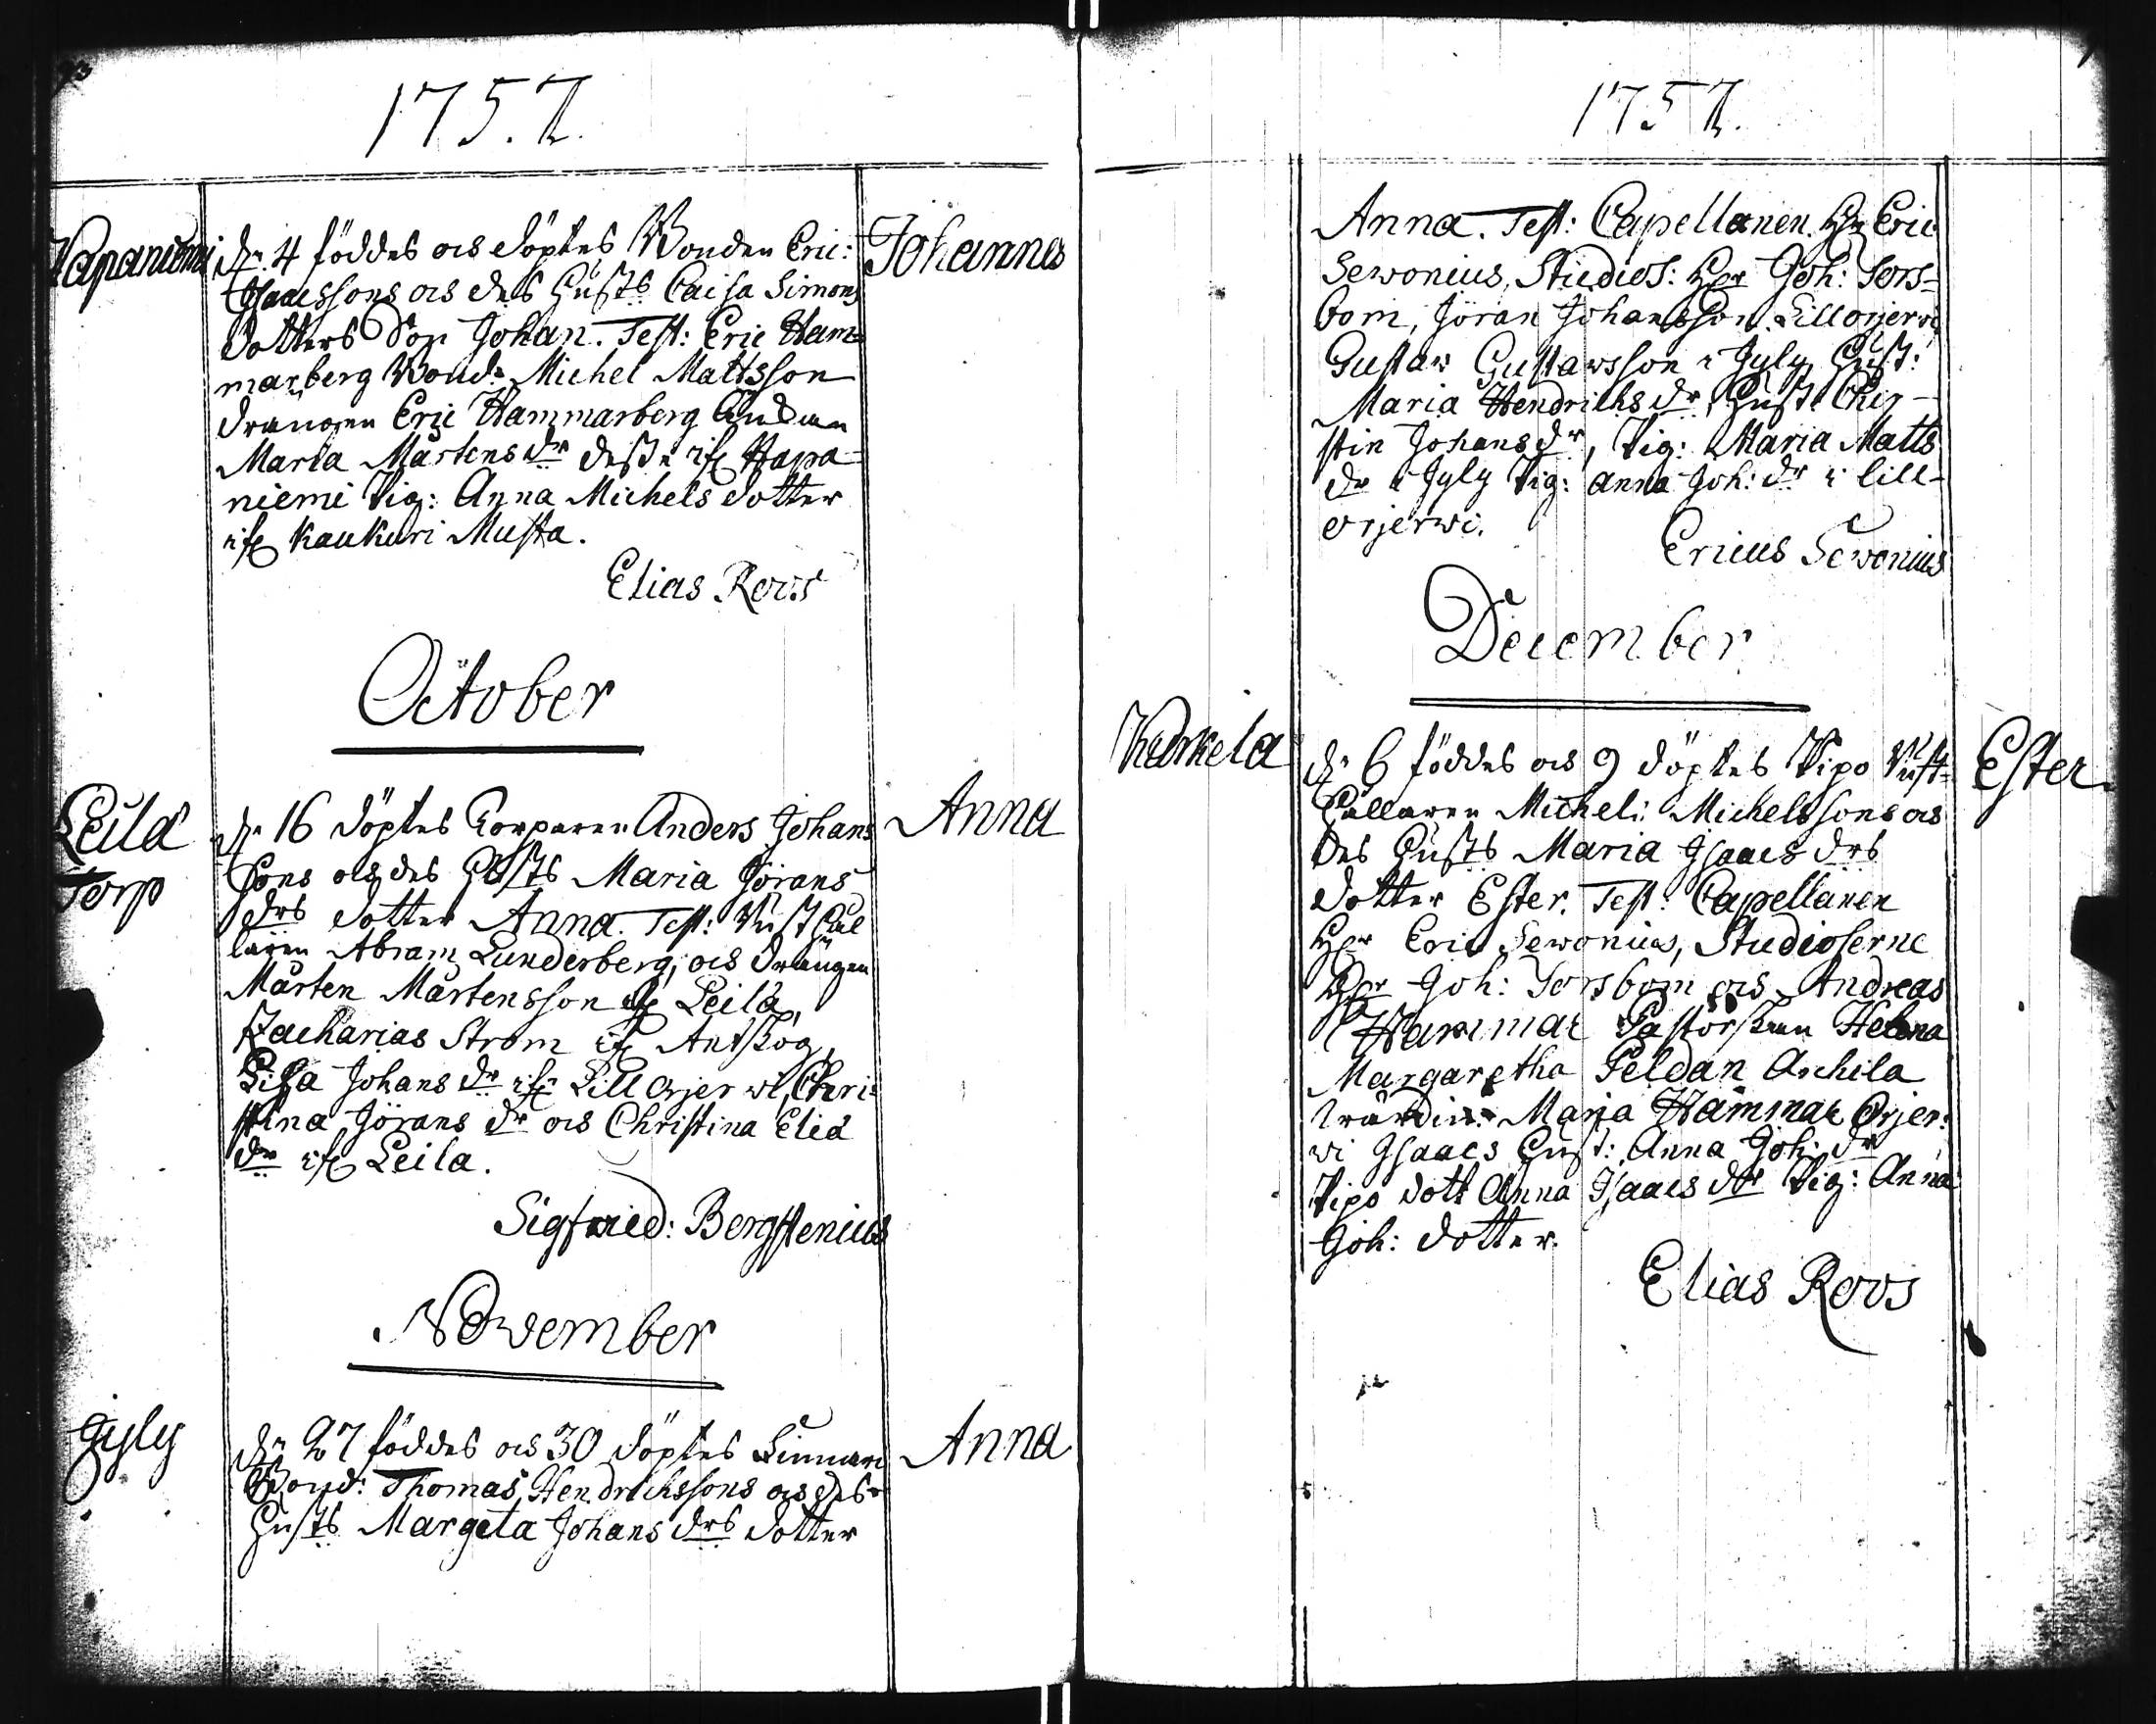 1757.
Hapaniemi
Dn 4 föddes ock döptes Bonden Eric:
Isaacssons ock des Hustrs Caisa Simons
dotters Son Johan. Test: Eric Ham=
marberg Bond: Michel Mattsson
drängen Eric Hammarberg
Maria Mårtens dr desse ifr Hapa=
niemi Pig: Anna Michels dotter
ifr Kaukuri Musta.
Elias Roos
Johannes
October
Leila
Torp
Dn 16 döptes Torparen Anders Johans
Sons ock des Hustrs Maria Jörans
drs dotter Anna. Test:
laren Abram Lunderberg, ock drängen
Mårten Mårtensson ifr Leila,
Zacharias Ström ifr Antskog,
Lisa Johans dr ifr Lill Orjerwi, Chri=
stina Jörans dr ock Christina Elia
dr ifr Leila.
Sigfried: Bergstenius
Anna
November
Jyly
Dn 27 föddes ock 30 döptes
Bond: Thomas Hendrichssons ock des
Hustrs Margeta Johans drs dotter
Anna
1757.
Anna. Test: Capellanen. Hr Eric
Sewonius, Studios: Hr Joh: Fors=
bom, Jöran Johansson Lillorjerwi
Gustaw Gustawsson i Jyly, Hust:
Maria Hendrichs dr, Hustr Chir=
stin Johans dr, Pig: Maria Matts
dr i Jyly Pig: Anna Joh: dr i Lill-
orjerwi.
Ericus Sewonius
December
Karkela
Dn 6 föddes ock 9 döptes Pipo
Michel: Michelssons ock
des Hustrs Maria Isaacs drs
dotter Ester. Test: Capellanen
Hr Eric Sewonius, Studioserne
Hr Joh: Forsbom ock Andreas
Hammar Pastorskan Helena
Margaretha Peldan
Maria Hammar Orjer=
wi Isaacs Hust: Anna Joh: dr
Pipo dott Anna Isaacs dr Pig: Anna
Joh: dotter.
Elias Roos
Ester.